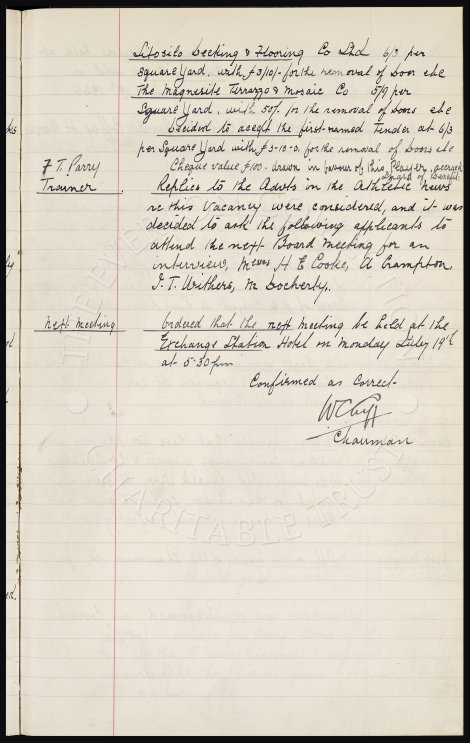 Litosilo Decking & Flooring Co Ltd 6/3 per
Square Yard. with £3/10/- for the removal of door etc
The Magnesite Terrazzo & Mosaic Co 5/9 per
Square Yard, with 50/. for the removal of doors etc
Decided to accept the first-named Tender at 6/3
per Square Yard with £3-10-0. for the removal of doors etc
F T. Parry
Cheque value £100. drawn in favour of this Player, accrued
Share of Benefit.
Trainer
Replies to the Advts in the Athletic News
re this Vacancy were considered, and it was
decided to ask the following applicants to
attend the next Board Meeting for an
interview, Messrs H E Cooke, A Crampton
J. T. Withers, M Docherty.
Next Meeting
Ordered that the next Meeting be held at the
Exchange Station Hotel on Monday July 19th
at 5-30 pm
Confirmed as correct-
W C Cuff
Chairman
CHARITABLE TRUST
ed.